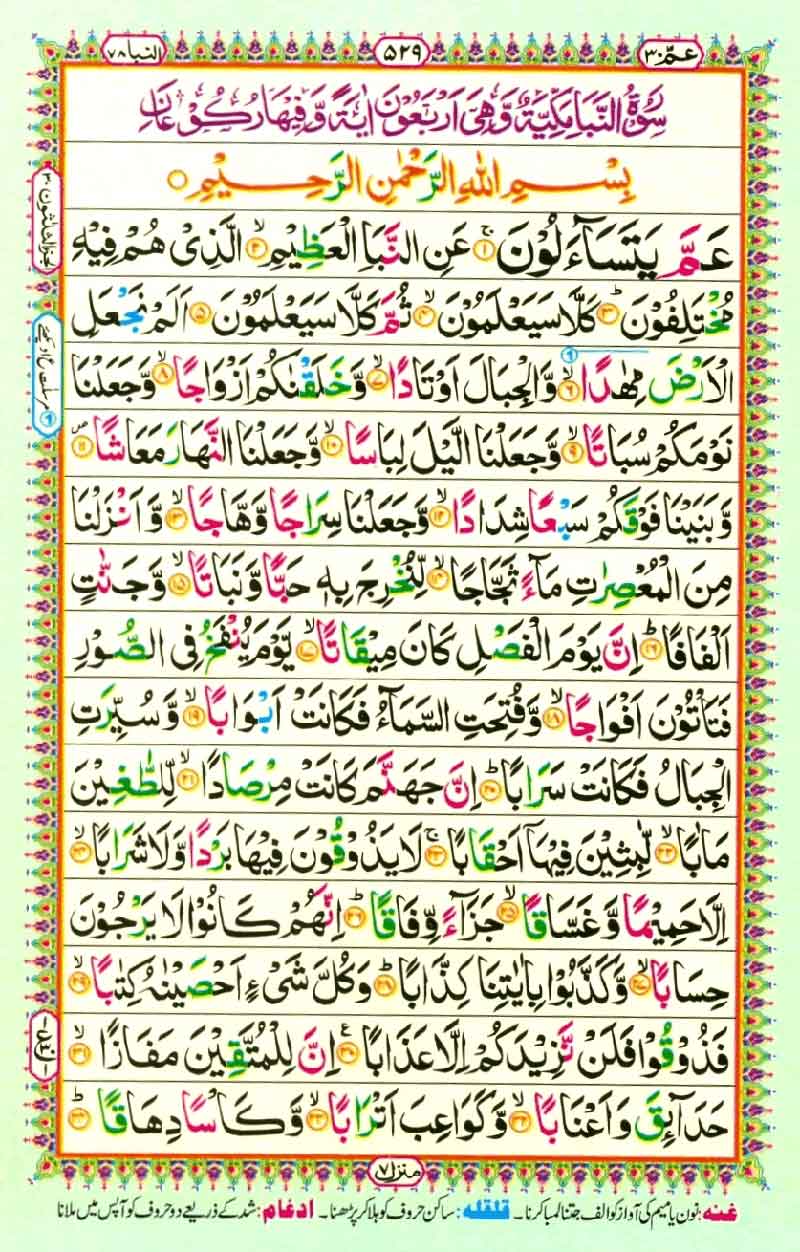 عم ۳۰
۵۲۹
النبا ۷۸
سُوْرَةُ النَّبَاِ مَكِّيَّةٌ وَّهِيَ اَرْبَعُوْنَ اٰيَةً وَّفِيْهَا رُكُوْعَانِ
بِسْمِ اللّٰهِ الرَّحْمٰنِ الرَّحِيْمِ ○
عَمَّ يَتَسَآءَلُوْنَ ۚ‏﴿۱﴾ عَنِ النَّبَاِ الْعَظِيْمِۙ‏﴿۲﴾ الَّذِىْ هُمْ فِيْهِ
مُخْتَلِفُوْنَؕ‏﴿۳﴾ كَلَّا سَيَعْلَمُوْنَۙ‏﴿۴﴾ ثُمَّ كَلَّا سَيَعْلَمُوْنَ‏﴿۵﴾ اَلَمْ نَجْعَلِ
الْاَرْضَ مِهٰدًاۙ‏﴿۶﴾ وَّالْجِبَالَ اَوْتَادًاۙ‏﴿۷﴾ وَّخَلَقْنٰكُمْ اَزْوَاجًاۙ‏﴿۸﴾ وَّجَعَلْنَا
نَوْمَكُمْ سُبَاتًاۙ‏﴿۹﴾ وَّجَعَلْنَا الَّيْلَ لِبَاسًاۙ‏﴿۱۰﴾ وَّجَعَلْنَا النَّهَارَ مَعَاشًا‏﴿۱۱﴾
وَّبَنَيْنَا فَوْقَكُمْ سَبْعًا شِدَادًاۙ‏﴿۱۲﴾ وَّجَعَلْنَا سِرَاجًا وَّهَّاجًاۙ‏﴿۱۳﴾ وَّاَنْزَلْنَا
مِنَ الْمُعْصِرٰتِ مَآءً ثَجَّاجًاۙ‏﴿۱۴﴾ لِّنُخْرِجَ بِهٖ حَبًّا وَّنَبَاتًاۙ‏﴿۱۵﴾ وَّجَنّٰتٍ
اَلْفَافًاؕ‏﴿۱۶﴾ اِنَّ يَوْمَ الْفَصْلِ كَانَ مِيْقَاتًاۙ‏﴿۱۷﴾ يَّوْمَ يُنْفَخُ فِى الصُّوْرِ
فَتَاْتُوْنَ اَفْوَاجًاۙ‏﴿۱۸﴾ وَّفُتِحَتِ السَّمَآءُ فَكَانَتْ اَبْوَابًاۙ‏﴿۱۹﴾ وَّسُيِّرَتِ
الْجِبَالُ فَكَانَتْ سَرَابًاؕ‏﴿۲۰﴾ اِنَّ جَهَنَّمَ كَانَتْ مِرْصَادًاۙ‏﴿۲۱﴾ لِّلطّٰغِيْنَ
مَاٰبًاۙ‏﴿۲۲﴾ لّٰبِثِيْنَ فِيْهَاۤ اَحْقَابًاۚ‏﴿۲۳﴾ لَا يَذُوْقُوْنَ فِيْهَا بَرْدًا وَّلَا شَرَابًاۙ‏﴿۲۴﴾
اِلَّا حَمِيْمًا وَّغَسَّاقًاۙ‏﴿۲۵﴾ جَزَآءً وِّفَاقًاؕ‏﴿۲۶﴾ اِنَّهُمْ كَانُوْا لَا يَرْجُوْنَ
حِسَابًاۙ‏﴿۲۷﴾ وَّكَذَّبُوْا بِاٰيٰتِنَا كِذَّابًاؕ‏﴿۲۸﴾ وَكُلَّ شَىْءٍ اَحْصَيْنٰهُ كِتٰبًاۙ‏﴿۲۹﴾
فَذُوْقُوْا فَلَنْ نَّزِيْدَكُمْ اِلَّا عَذَابًا‏﴿۳۰﴾ اِنَّ لِلْمُتَّقِيْنَ مَفَازًاۙ‏﴿۳۱﴾
حَدَآئِقَ وَاَعْنَابًاۙ‏﴿۳۲﴾ وَّكَوَاعِبَ اَتْرَابًاۙ‏﴿۳۳﴾ وَّكَاْسًا دِهَاقًاؕ‏﴿۳۴﴾
الجزء الثلثون ۳۰
منزل ۷
غنه: نون یا میم کی آواز کو الف جتنا لمبا کرنا۔ قلقله: ساکن حروف کو ہلا کر پڑھنا۔ ادغام: شد کے ذریعے دو حروف کو آپس میں ملانا